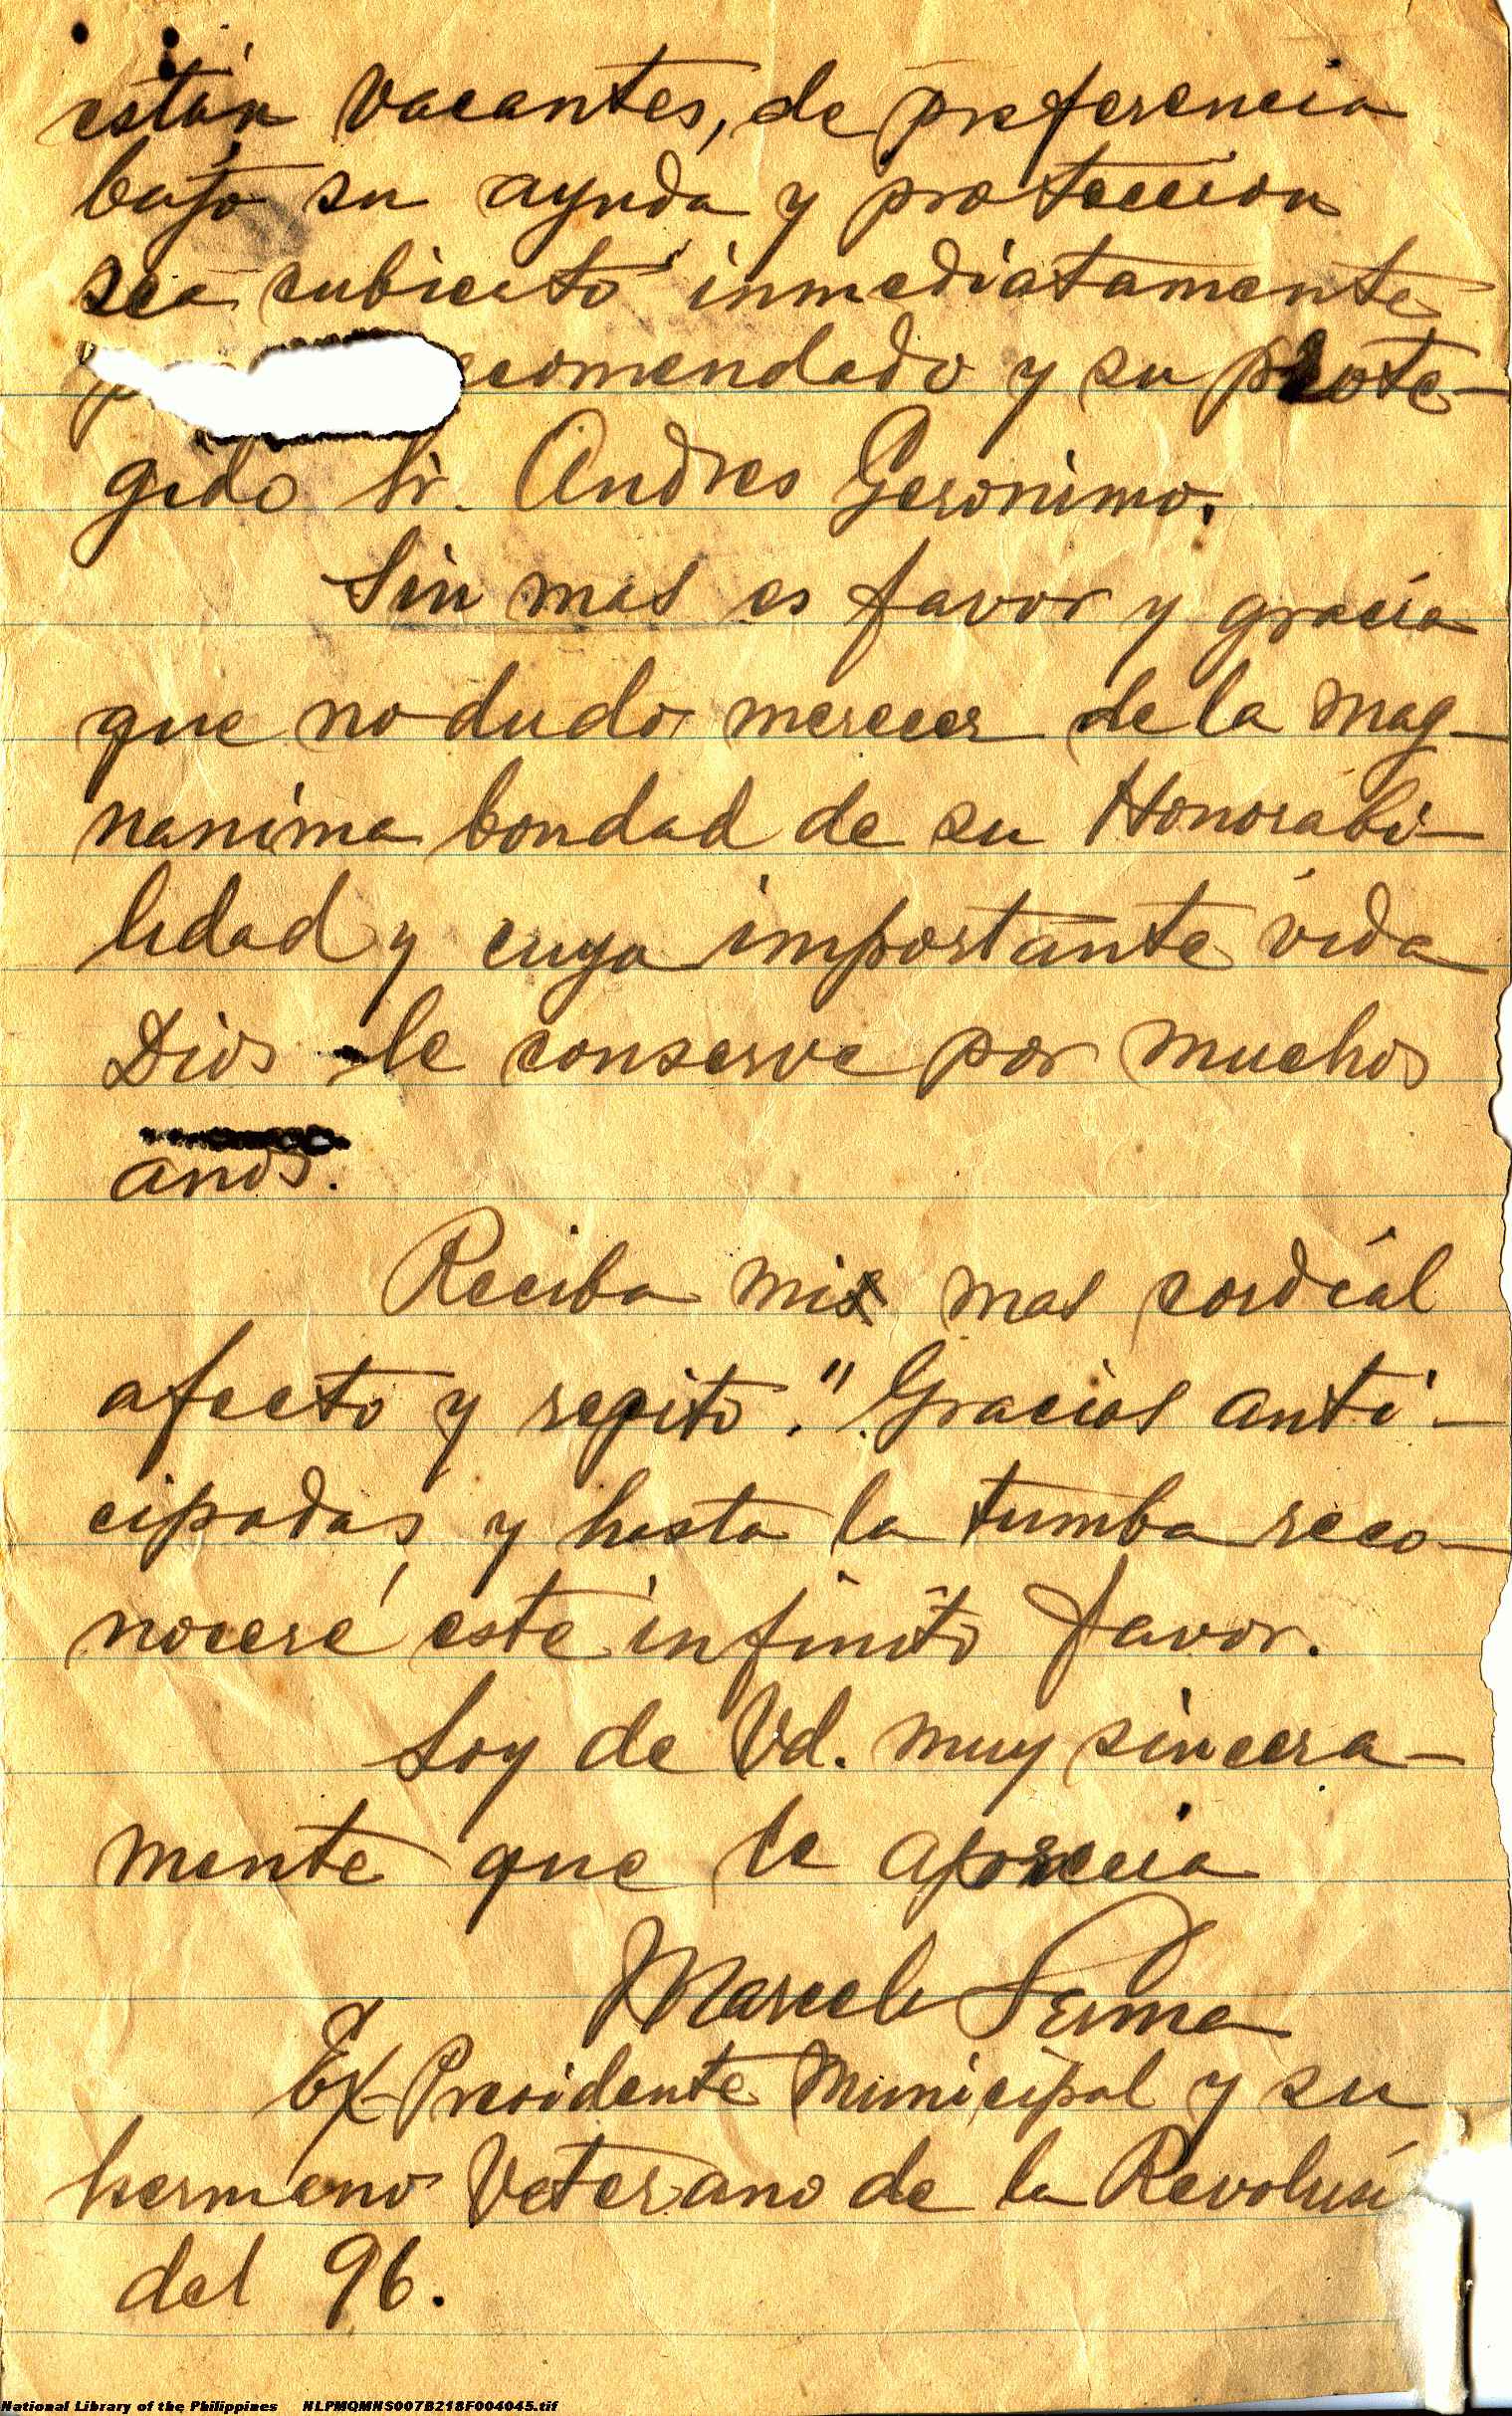 están vacantes, de preferencia
bajo su ayuda y proteccion
sea cubierto inmediatamente
ecomendado y su prote-
gido Sr. Andres Geronimo.
Sin mas es favor y gracia
que no dudo merecer de la mag-
nanima bondad de su Honorabi-
lidad y cuya importante vida
Dios le conserve por muchos
anos.
Reciba mis mas cordial
afecto y repito. "Gracias anti-
cipadas, y hasta la tumba reco-
noceré este infinito favor.
Soy de Vd. muy sincera-
mente que le aprecia
Marcelo
Ex-Presidente Municipal y su
hermano Veterano de la
del 96.
National Library of the Philippines NLPMQMNS007B218F004045.tif